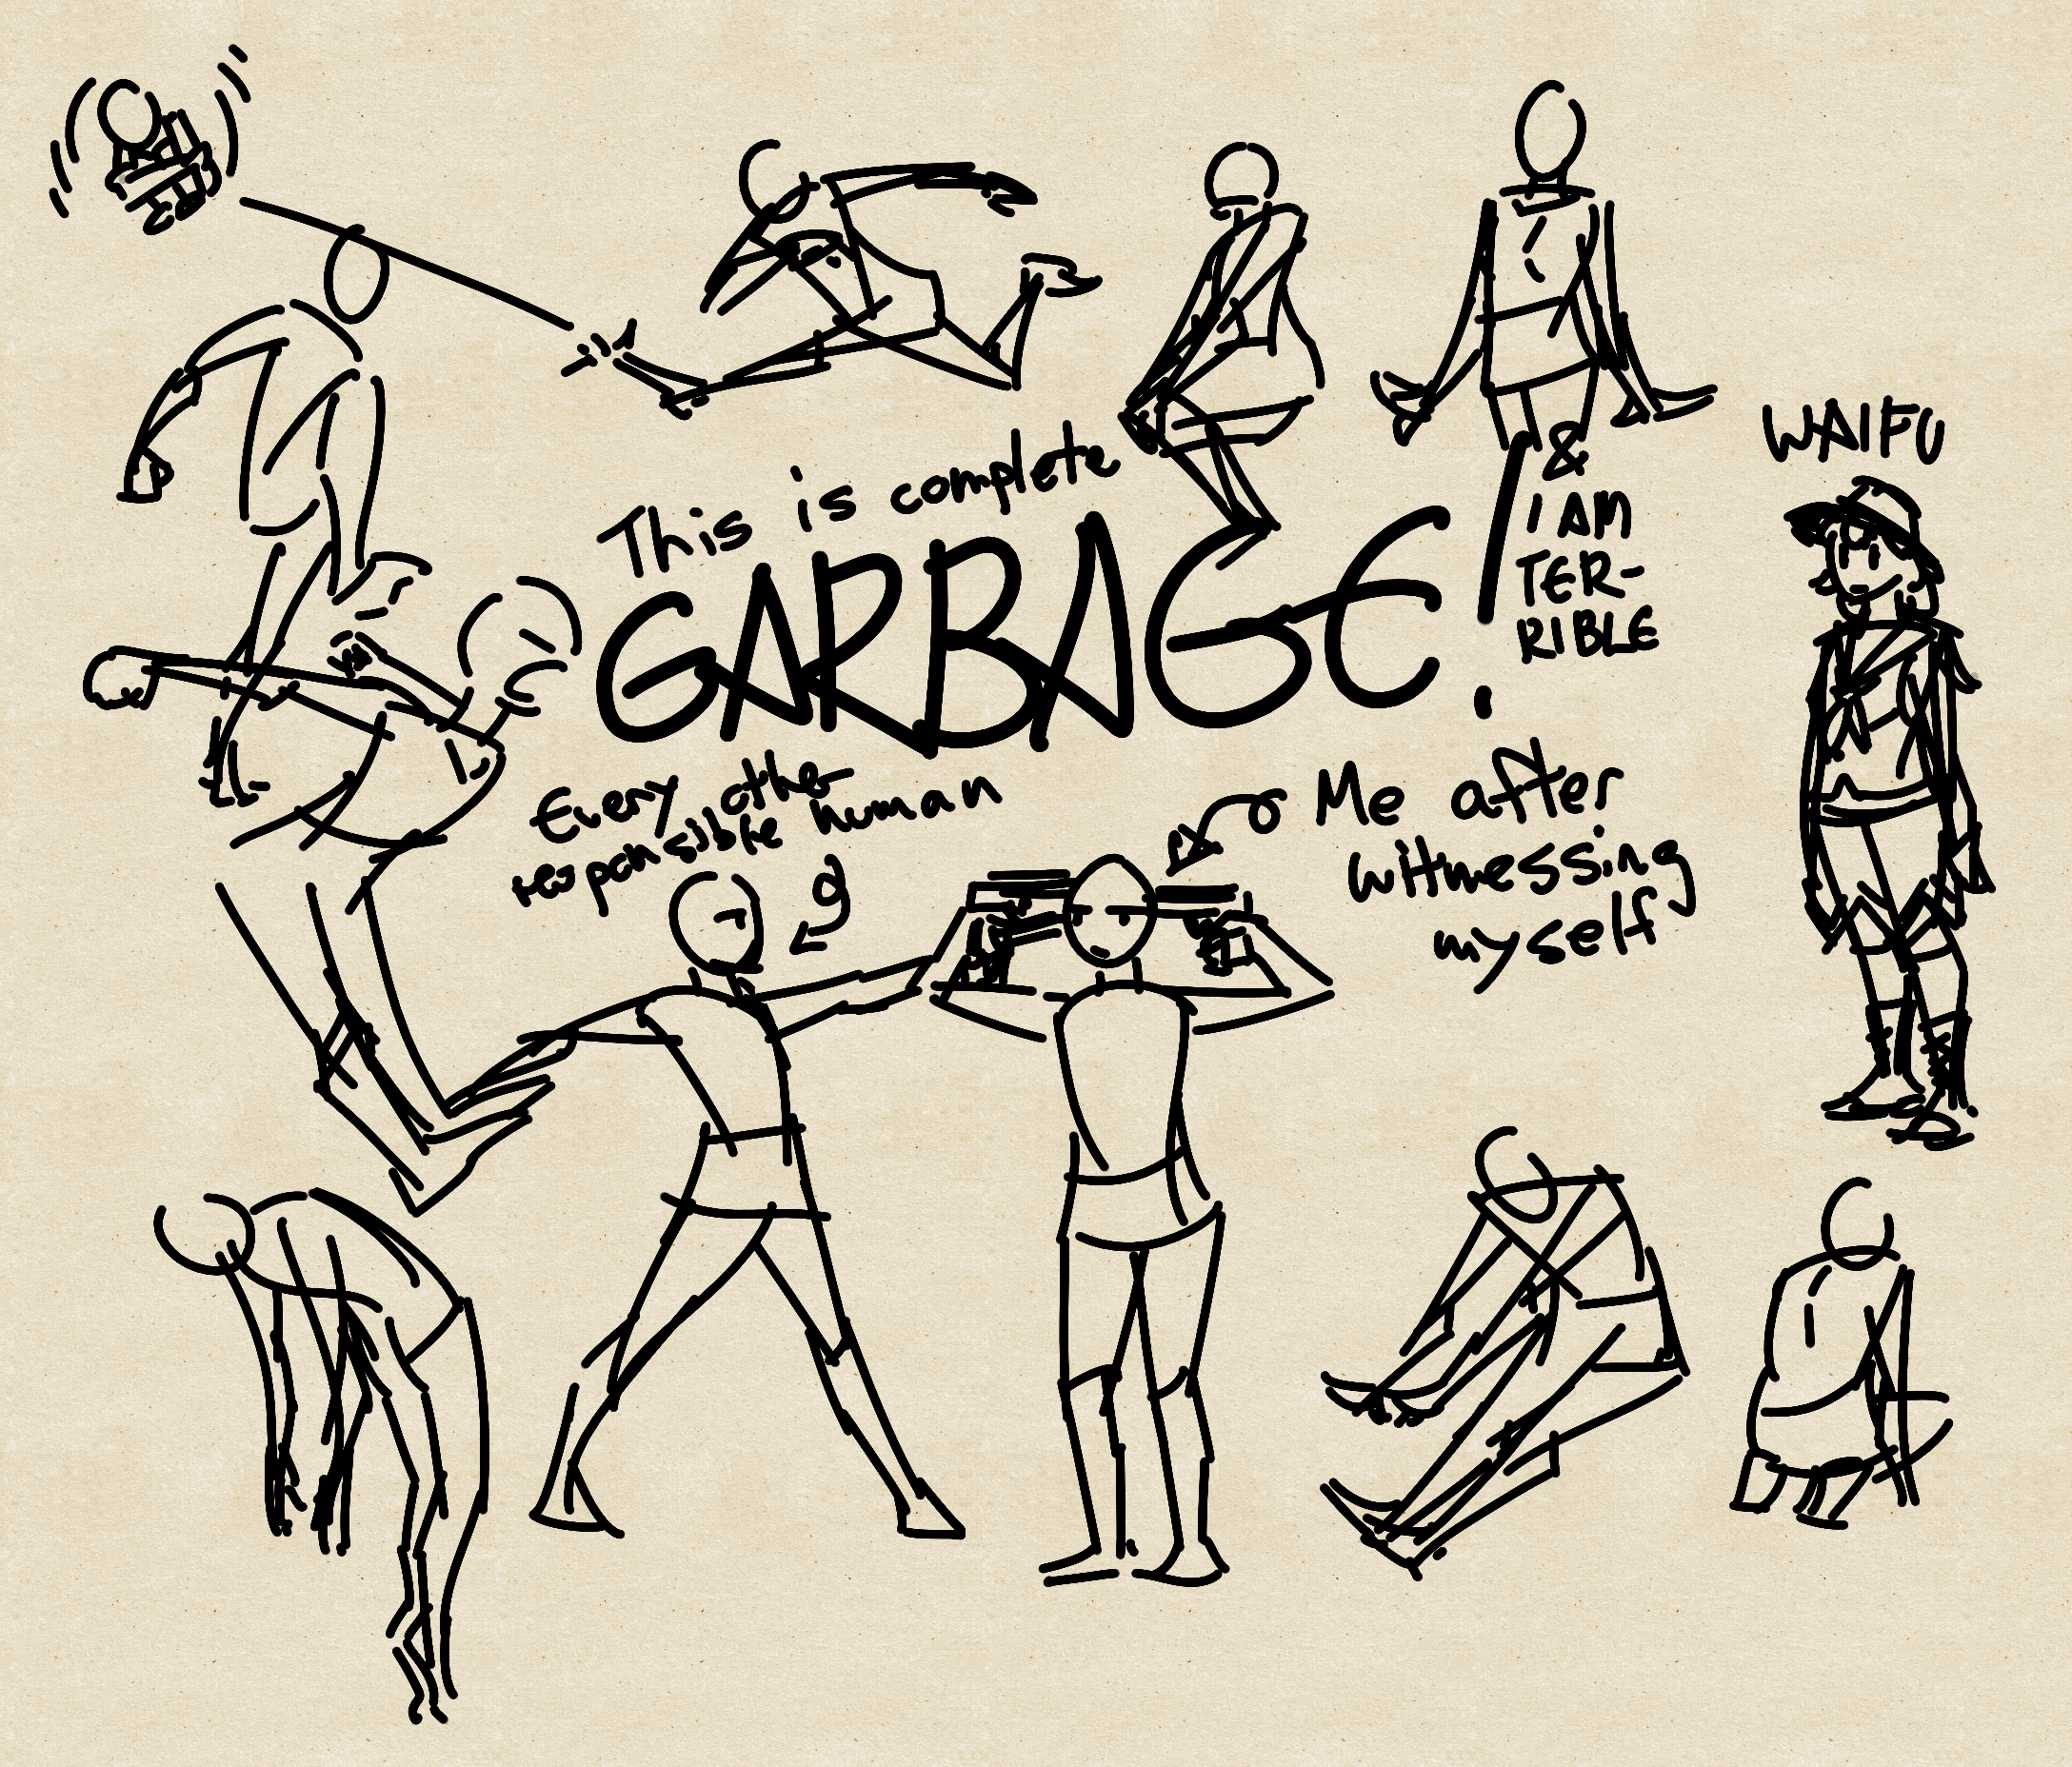 This is complete
GARBAGE!
& 
I AM
TER-
RIBLE
WAIFU
Every other
responsible human
Me after
witnessing
myself